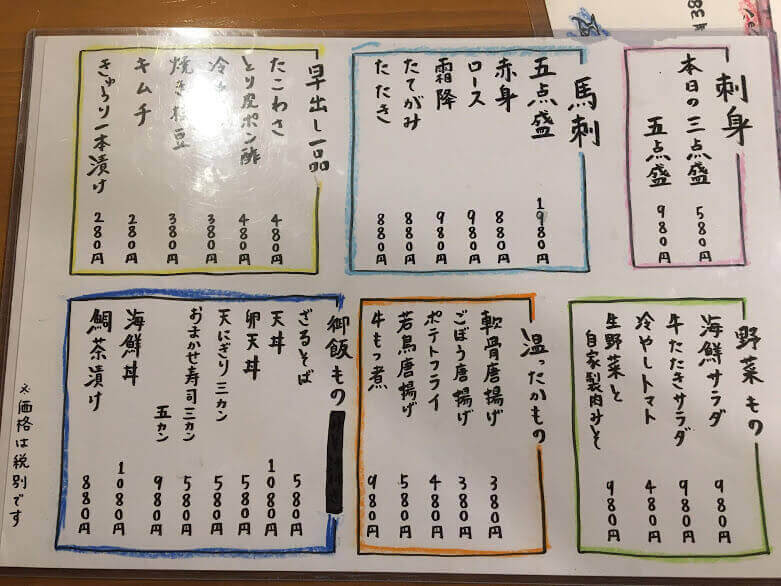 刺身
本日の三点盛 580円
五点盛 980円
馬刺
五点盛 1980円
赤身 880円
ロース 980円
霜降 980円
たてがみ 880円
たたき 880円
早出し一品
たこわさ 480円
とり皮ポン酢 480円
冷 380円
焼き枝豆 380円
キムチ 280円
きゅうり一本漬け 280円
野菜もの
海鮮サラダ 980円
牛たたきサラダ 980円
冷やしトマト 480円
生野菜と
自家製肉みそ 980円
温ったかもの
軟骨唐揚げ 380円
ごぼう唐揚げ 380円
ポテトフライ 480円
若鳥唐揚げ 580円
牛もつ煮 980円
御飯もの
ざるそば 580円
天丼 1080円
卵天丼 580円
天にぎり三カン 580円
おまかせ寿司三カン 580円
五カン 980円
海鮮丼 1080円
鯛茶漬け 880円
※価格は税別です